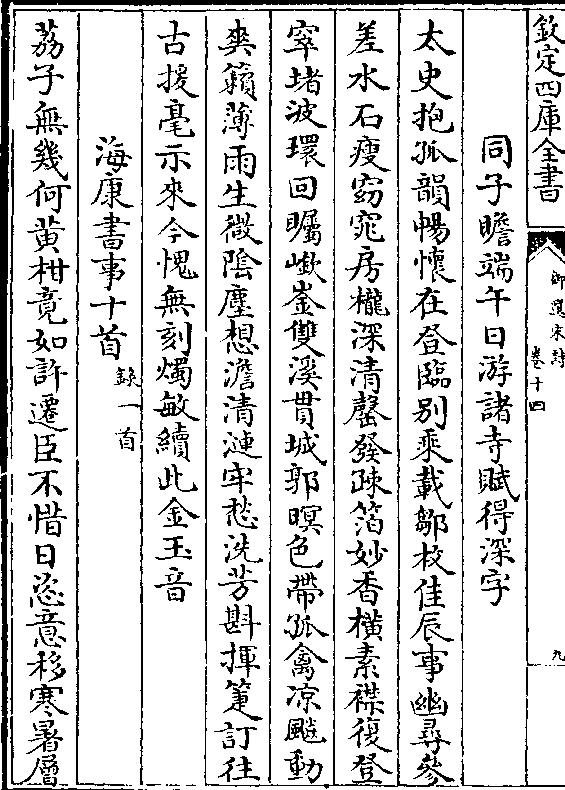 欽定四庫全書
御選宋詩
卷十四
九
同子瞻端午日游諸寺賦得深字
太史抱孤韻暢懷在登臨别乘載鄒枚佳辰事幽尋參
差水石瘦窈窕房櫳深清罄發疎箔妙香橫素襟復登
窣堵波環回矚嶔崟雙溪貫城郭暝色帶孤禽凉飈動
爽籟薄雨生微陰塵想澹清漣牢愁洗芳斟揮箑訂往
古援毫示來今愧無刻燭敏續此金玉音
海康書事十首
錄一首
荔子無幾何黄柑竟如許遷臣不惜日恣意移寒暑層